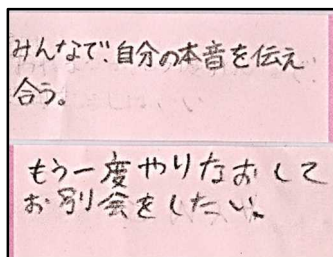 みんなで、自分の本音を伝え
合う。
もう一度やりなおして
お別会をしたい。